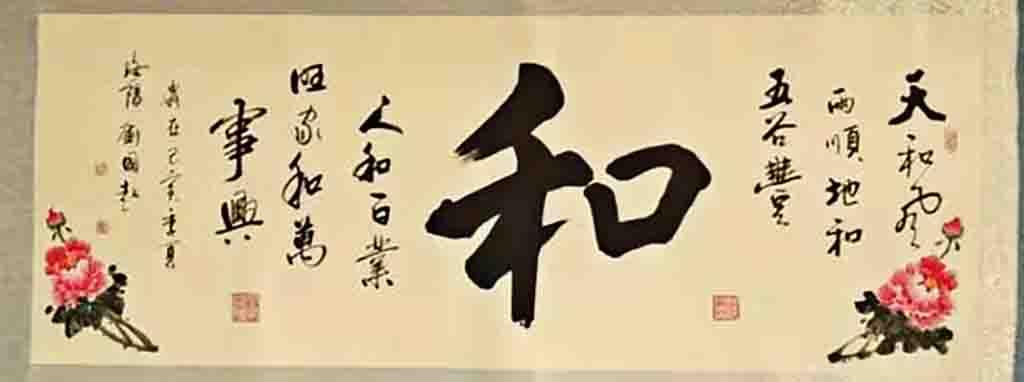 天和風
雨順地和
五谷豐登
和
人和百業
旺家和萬
事興
歲在己亥年夏
劉國